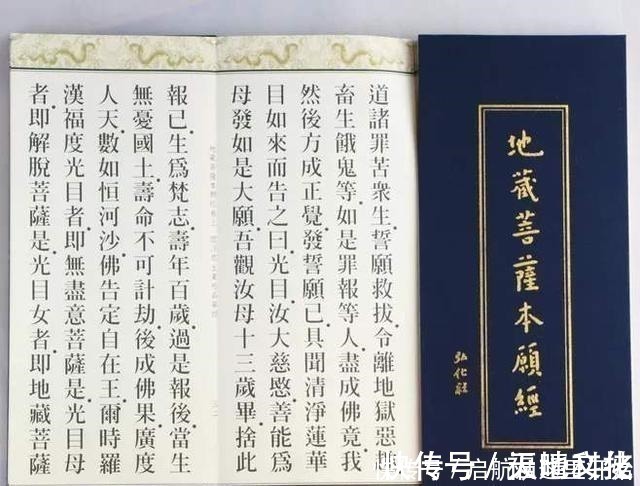 地藏菩薩本願經
弘化社
道諸罪苦衆生誓願救拔令離地獄惡
畜生餓鬼等如是罪報等人盡成佛竟我
然後方成正覺發誓願已具聞清淨蓮華
目如來而告之曰光目汝大慈愍善能爲
母發如是大願吾觀汝母十三歲畢捨此
報已生爲梵志壽年百歲過是報後當生
無憂國土壽命不可計劫後成佛果廣度
人天數如恒河沙佛告定自在王爾時羅
漢福度光目者即無盡意菩薩是光目母
者即解脫菩薩是光目女者即地藏菩薩